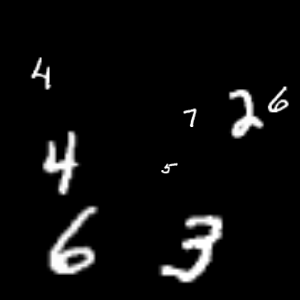 4
7 2 6
4 5
6 3